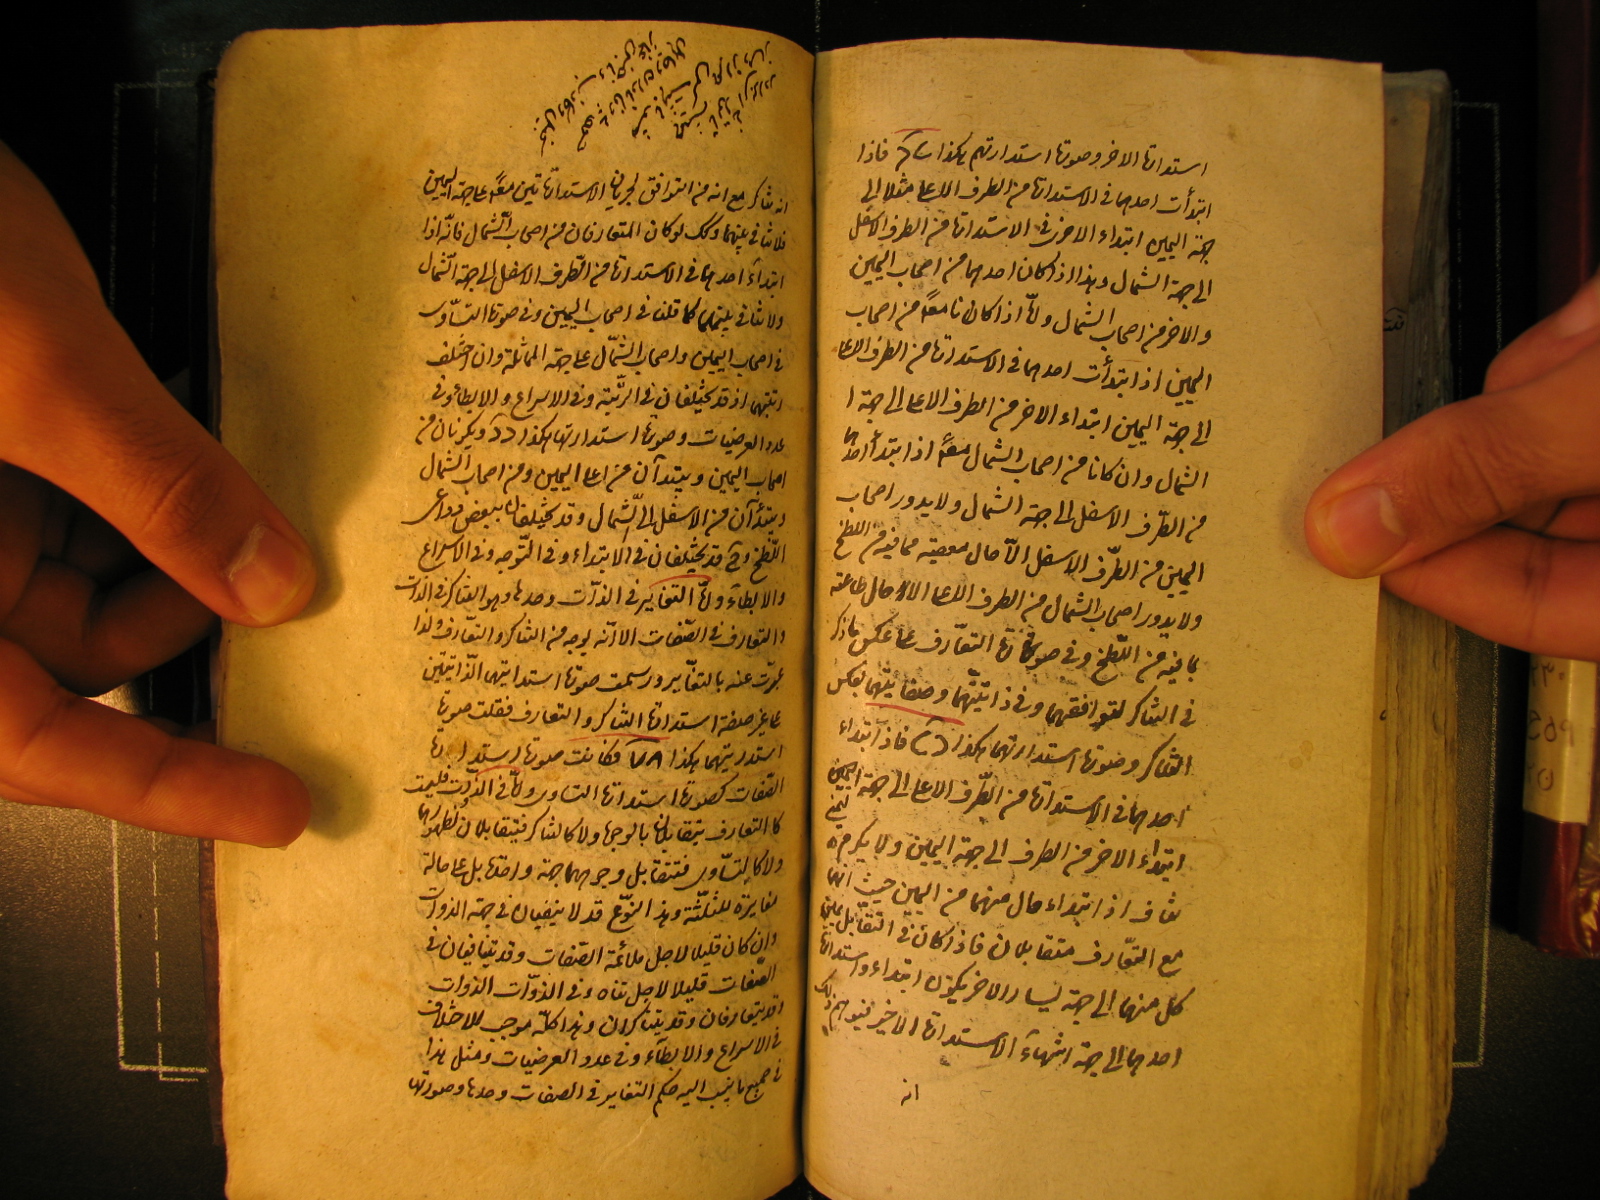 استدارتها الاخر وصورتها استدارتهم هكذا فاذا
ابتدأت احدهما فى الاستدارة من الطرف الاعلا مثلا الى
جهة اليمين ابتداء الاخرى فى الاستدارة من الطرف الاسفل
الى جهة الشمال وهذا اذا كان احدهما من اصحاب اليمين
والاخر من اصحاب الشمال وامّا اذا كانا معًا من اصحاب
اليمين اذا ابتدأت احدهما فى الاستدارة من الطرف الاعلا
الى جهة اليمين ابتداء الاخر من الطرف الاعلا الى جهة ا
الشمال وان كانا من اصحاب الشمال معًا اذا ابتدأ احدهما
من الطّرف الاسفل الى جهة الشمال ولا يدور اصحاب
اليمين من الطّرف الاسفل الّا حال معصيته مما فيه من اللطخ
ولا يدور اصحاب الشمال من الطرف الاعلا الا حال طاعته
بما فيه من اللّطخ وفى صورة التعارف على عكس ما ذكر
فى التناكر لتوافقهما وفى ذاتيّتهما وصفاتيتهما بعكس
التناكر وصورتها استدارتهما هكذا فاذا ابتداء
احدهما فى الاستدارة من الطّرف الاعلا الى جهة اليمين
ابتداء الاخر من الطرف الى جهة اليمين ولا يكره
تناف اذا ابتداء حال منهما من اليمين حيث انهما
مع التعّارف متقابلان فاذا كان فى التقابل يمين
كل منهما الى جهة يسار الاخر يكون ابتداء واستدارة
احدهما الى جهة انتهاء الاستدارة الاخر فيتوهم ذلك
انه
انه تناكر مع انه من التوافق لجريان الاستدارتين معًا على جهة اليمين
فلا تنافى بينهما وكك لو كان المتعارفان من اصحاب الشّمال فانّه اذا
ابتداء احدهما فى الاستدارة من الطّرف الاسفل الى جهة الشّمال
ولا تنافى بينهما كما قلنا فى اصحاب اليمين وفى صورة التساوى
فى اصحاب اليمين واصحاب الشّمال على جهة المماثلة وان اختلف
رتبتهما اذ قد يختلفان فى الرّتبة وفى الاسراع والابطاء وفى
عدد العرضيات وصورة استدارتهما هكذا ويكونان من
اصحاب اليمين ويبتدآن من اعلا اليمين ومن اصحاب الشمال
ويبتدآن من الاسفل الى الشّمال وقد يختلفان ببعض دواعى
اللّطخ وح قد يختلفان فى الابتداء وفى التّوجه وفى الاسراع
والابطاء وامّا التغاير فى الذّرات وحدها وهو التناكر فى الذوات
والتعارف فى الصّفات الا انّه بوجه من التناكر والتعّارف ولذا
عبّرت عنه بالتغاير ورسمت صورة استدارتيهما الذاتيتين
على غير صفة استدارة التناكر والتعارف فقلت صورة
استدارتيهما هكذا ٧٨ فكانت صورة استدارة
الصّفات كصورة استدارة التساوى وامّا فى الذّوات فليست
كالتعارف يتقابلان بالوجه ولا كالتناكر فيتقابلان بظهورهما
ولا كالتساوى فتتقابل وجوههما جهة واحدة بل على حالة
مغايرة للثلثة وهذا النّوع قد لا يتنافيان فى جهة الذوات
وان كان قليلا لاجل ملائمة الصّفات وقد يتنافيان فى
الصّفات قليلا لاجل تناف فى الذوّات الذوات
قد يتعارفان وقد يتناكران وهذا كلّه موجب للاختلاف
فى الاسراع والابطاء وفى عدد العرضيات ومثل هذا
فى جميع ما ينسب اليه حكم التغاير فى الصفات وحدها وصورتها